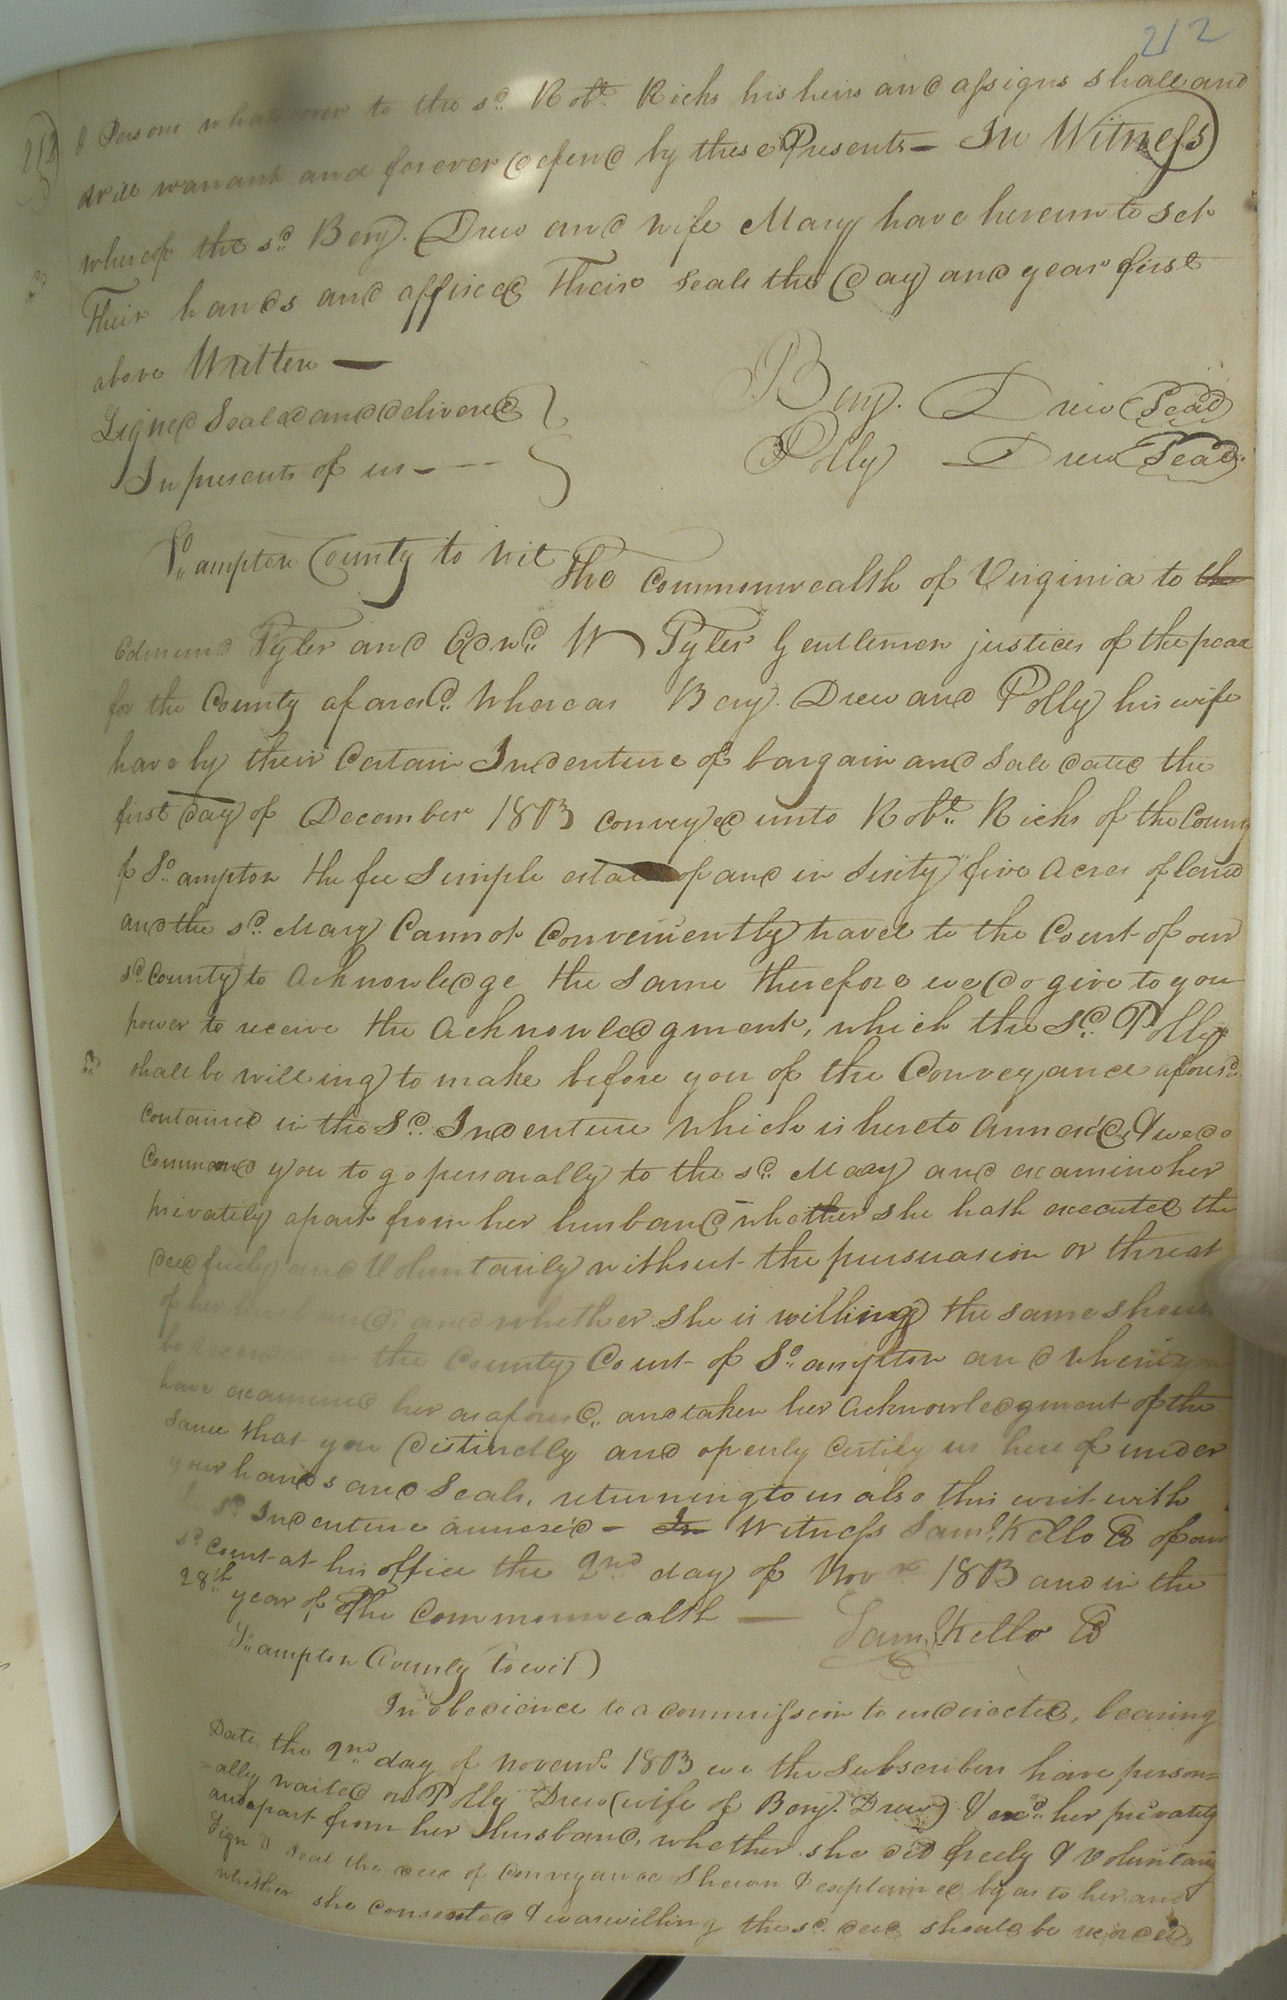 212
212
& Persons whatsoever to the sd. Robt. Ricks his heirs and assigns shall and
will warrant and forever defend by these Presents — In Witness
whereof the sd. Benj. Drew and wife Mary have hereunto set
Their hands and affixed Their seals the day and year first
above Written —
Signed Sealed and delivered
In presents of us - - -
Benj. Drew Seal
Polly Drew Seal
So.ampton County to wit
The Commonwealth of Virginia to the
Edmund Tyler and Edwd. W Tyler Gentlemen justices of the peace
for the County aforesd. Whereas Benj. Drew and Polly his wife
have by their Certain Indenture of bargain and Sale dated the
first day of December 1803 conveyed unto Robt. Ricks of the County
of So.ampton the fee Simple estate of and in Sixty five Acres of land
and the sd. Mary Cannot Conveniently travel to the Court of our
sd. County to Acknowledge the Same therefore we do give to you
power to receive the Acknowledgment, which the Sd. Polly
shall be willing to make before you of the Conveyance aforesd.
contained in the Sd. Indenture which is hereto annex'd, & we do
Command you to go personally to the sd. Mary and examine her
privately apart from her husband whether she hath executed the
deed freely and Voluntarily without the persuasion or threat
of her husband, and whether she is willing the same should
be recorded in the County Court of So.ampton and when you
have examined her as aforesd. and taken her Acknowledgment of the
Same that you distinctly and openly Certify us here of under
your hands and Seals, returning to us also this writ with
sd. Indenture annexed — In Witness Saml. Kello C of our
sd. Court at his office the 2nd day of Novr. 1803 and in the
28th year of The Commonwealth — Saml. Kello C
So.ampton County Towit
In obedience to a commission to us directed, bearing
Date the 2nd day of Novemr. 1803 we the Subscribers have person=
-ally waited on Polly Drew (wife of Benj. Drew) & exd. her privately
and apart from her Husband, whether she did freely & Voluntary
Sign & Seal the deed of Conveyance Shewn & explained by us to her and
whether she consented & was willing the sd. deed should be recorded